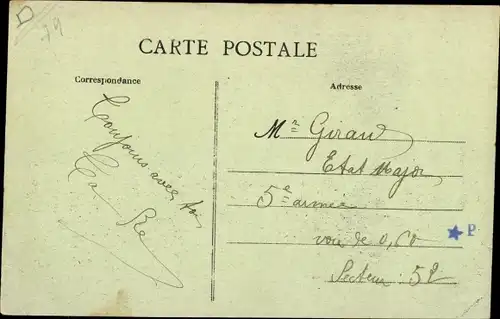 D
79
CARTE POSTALE
Correspondance
Adresse
Toujours avec toi
Mr Giraud
Etat Major
5e armée
voie de 0,60
★ P
Secteur 52